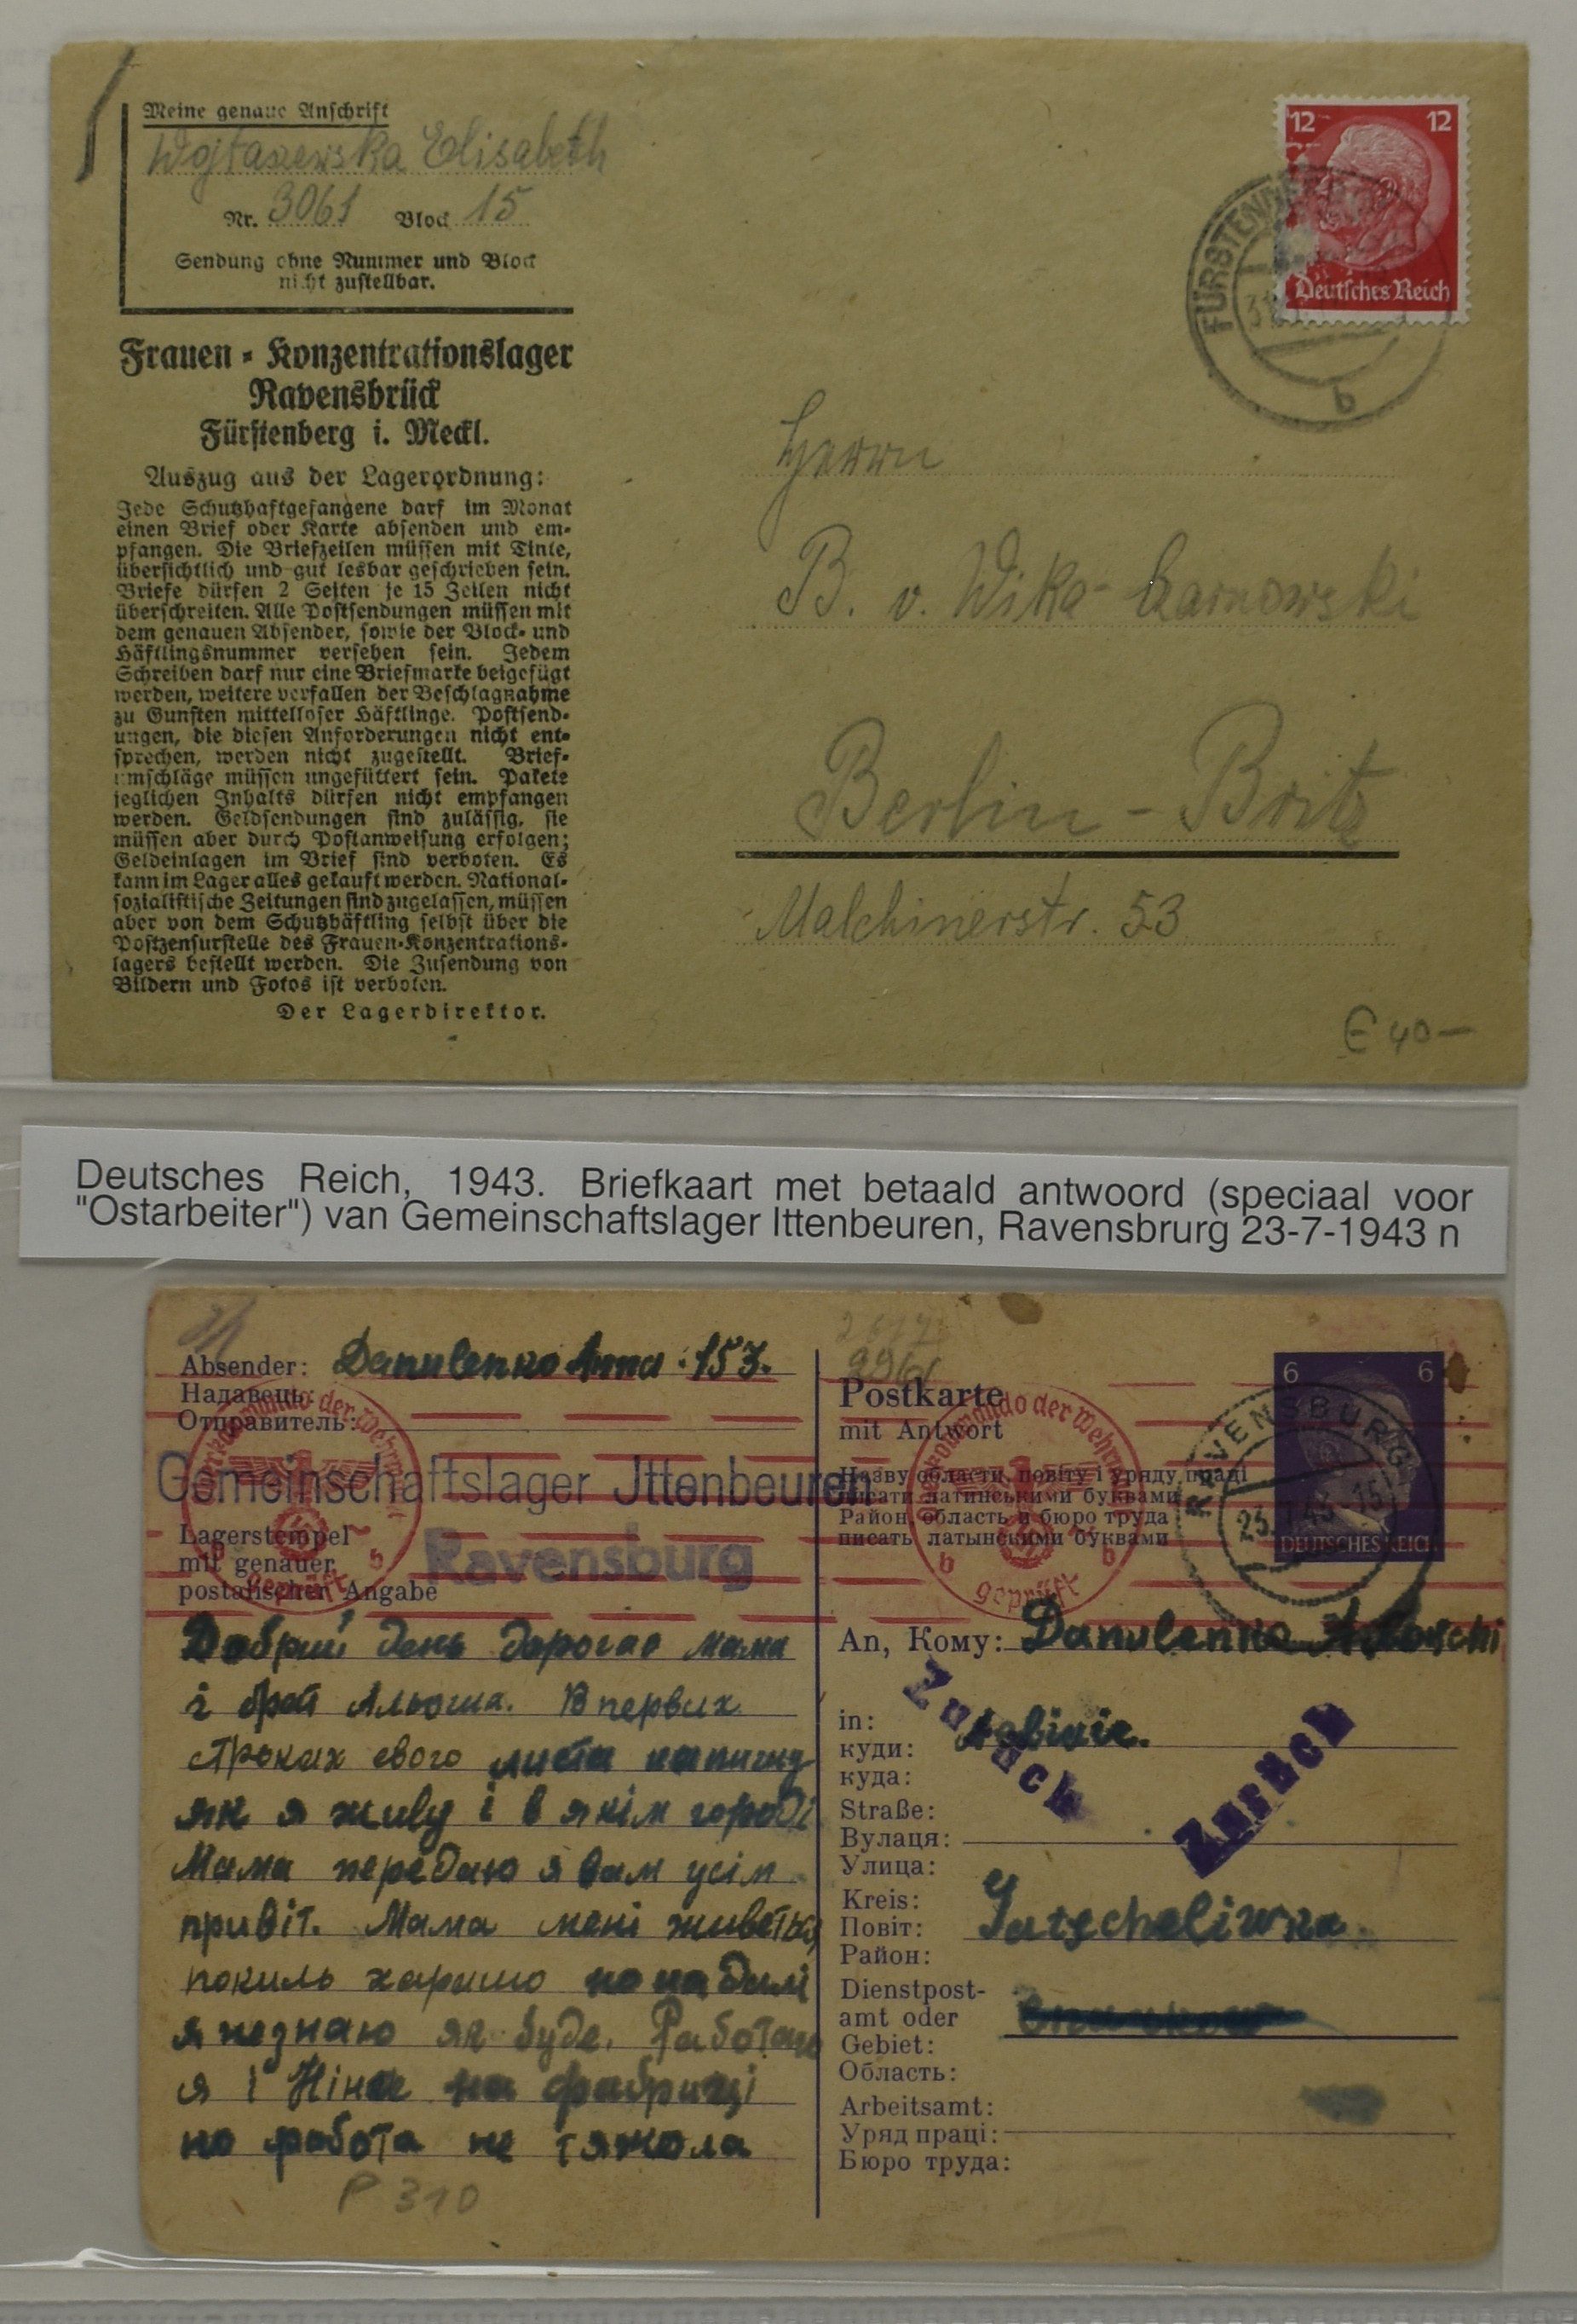 Meine genaue Anschrift
Wojtaszewska Elisabeth
Nr. 3061 Block 15
Sendung ohne Nummer und Block
nicht zustellbar.
Frauen-Konzentrationslager
Ravensbrück
Fürstenberg i. Meckl.
Auszug aus der Lagerordnung:
Jede Schutzhaftgefangene darf im Monat
einen Brief oder Karte absenden und em-
pfangen. Die Briefzeilen müssen mit Tinte,
übersichtlich und gut lesbar geschrieben sein.
Briefe dürfen 2 Seiten je 15 Zeilen nicht
überschreiten. Alle Postsendungen müssen mit
dem genauen Absender, sowie der Block- und
Häftlingsnummer versehen sein. Jedem
Schreiben darf nur eine Briefmarke beigefügt
werden, weitere verfallen der Beschlagnahme
zu Gunsten mittelloser Häftlinge. Postsend-
ungen, die diesen Anforderungen nicht ent-
sprechen, werden nicht zugestellt. Brief-
umschläge müssen ungefüttert sein. Pakete
jeglichen Inhalts dürfen nicht empfangen
werden. Geldsendungen sind zulässig, sie
müssen aber durch Postanweisung erfolgen;
Geldeinlagen im Brief sind verboten. Es
kann im Lager alles gekauft werden. National-
sozialistische Zeitungen sind zugelassen, müssen
aber von dem Schutzhäftling selbst über die
Postzensurstelle des Frauen-Konzentrations-
lagers bestellt werden. Die Zusendung von
Bildern und Fotos ist verboten.
Der Lagerdirektor.
12 12
Deutsches Reich
FÜRSTENBERG
b
Herrn
B. v. Wika-Czarnowski
Berlin-Britz
Malchinerstr. 53
€ 40—
Deutsches Reich, 1943. Briefkaart met betaald antwoord (speciaal voor
"Ostarbeiter") van Gemeinschaftslager Ittenbeuren, Ravensbrurg 23-7-1943 n
Absender: Danulenko Anna 153.
Надавець:
Отправитель:
Gemeinschaftslager Jttenbeuren
Ravensburg
Lagerstempel
mit genauer
postalischer Angabe
Oberkommando der Wehrmacht
geprüft
b b
Добрий день дорогае мама
і брат Альоша. В первих
строках свого листа напишу
як я живу і в якім городі
Мама передаю я вам усім
привіт. Мама мені живеться
покиль харашо но на далі
я незнаю як буде. Работаю
я і Ніна на фабриці
но работа не тяжола
P 310
2961
Postkarte
mit Antwort
Назву області, повіту і уряду праці
писати латинськими буквами
Район, область и бюро труда
писать латынскими буквами
Oberkommando der Wehrmacht
geprüft
b b
6 6
DEUTSCHES REICH
RAVENSBURG
23.7.43-15
An, Кому: Danulenko
Zurück
Zurück
in:
куди:
куда:
Straße:
Вулаця:
Улица:
Kreis:
Повіт: Sutscheliwka
Район:
Dienstpost-
amt oder
Gebiet:
Область:
Arbeitsamt:
Уряд праці:
Бюро труда: